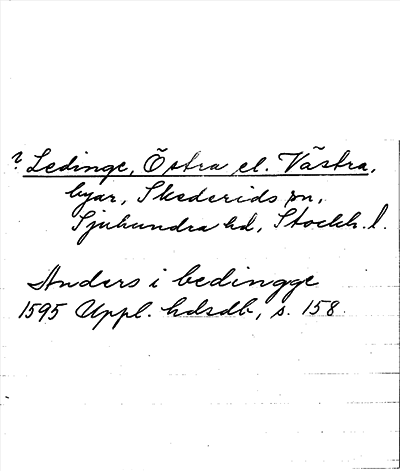 ? Ledinge, Östra el. Västra,
byar, Skederids sn,
Sjuhundra hd, Stockh. l.
Anders i bedingge
1595 Uppl. hdsdb, s. 158.